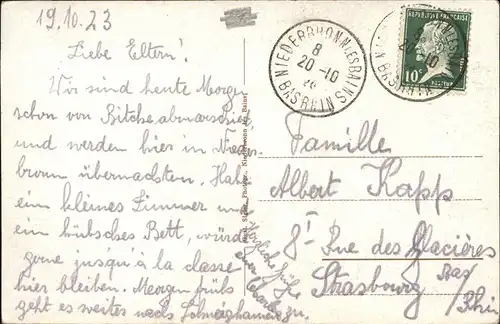 19.10.23
Liebe Eltern!
Wir sind heute Morgen
schon von Bitche abmarschiert
und werden hier in Nieder-
bronn übernachten. Habe
ein kleines Zimmer und
ein hübsches Bett, würde
gerne jusqu'à la classe
hier bleiben. Morgen früh
geht es weiter nach
Herzliche Grüße
euer
NIEDERBRONN LES BAINS
8
20-10
BAS RHIN
REPUBLIQUE FRANÇAISE
10c
POSTES
NIEDERBRONN LES BAINS
8
20-10
BAS RHIN
Famille
Albert Kapp
8I Rue des Glacières
Strasbourg Bas/
Rhin